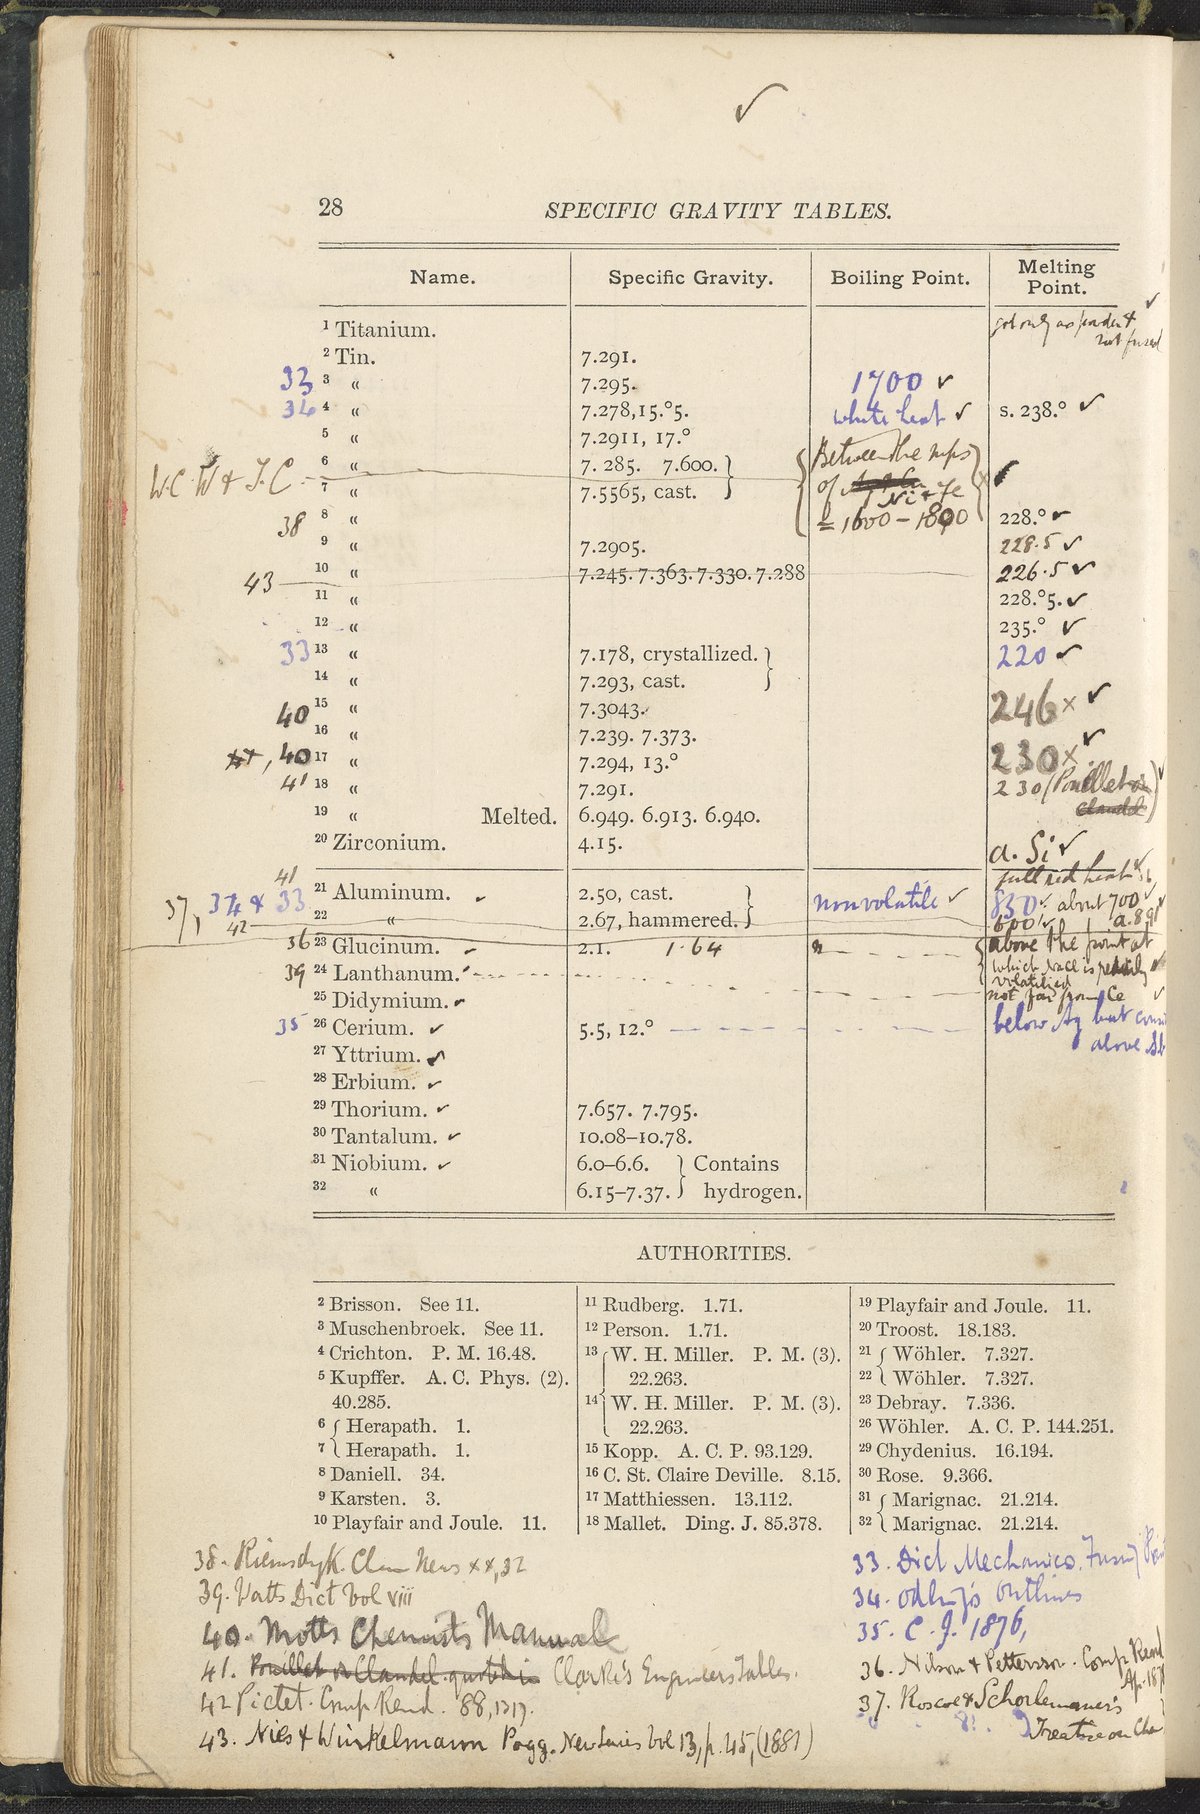 ✓
28 SPECIFIC GRAVITY TABLES.
Name. Specific Gravity. Boiling Point. Melting Point.
1 Titanium. got only as powder & not fused ✓
2 Tin. 7.291.
33 3 " 7.295. 1700 ✓
34 4 " 7.278,15.°5. white heat ✓ s. 238.° ✓
5 " 7.2911, 17.° Between the mps
W.C.W & F.C. 6 " 7. 285. 7.600. of
7 " 7.5565, cast. Ni & Fe
38 8 " = 1600 – 1800 228.° ✓
9 " 7.2905. 228.5 ✓
43 10 " 7.245. 7.363. 7.330. 7.288 226.5 ✓
11 " 228.°5. ✓
12 " 235.° ✓
33 13 " 7.178, crystallized. 220 ✓
14 " 7.293, cast.
40 15 " 7.3043. 246 x ✓
16 " 7.239. 7.373.
40 17 " 7.294, 13.° 230 x ✓
41 18 " 7.291. 230 (Pouillet or Claudel) ✓
19 " Melted. 6.949. 6.913. 6.940.
20 Zirconium. 4.15. a. Si ✓
41 full red heat
37, 34 & 33 21 Aluminum. ✓ 2.50, cast. nonvolatile ✓ 830 ✓ about 700 ✓
42 22 " 2.67, hammered. 600 ✓
36 23 Glucinum. 2.1. 1.64 above the point at
39 24 Lanthanum. which is readily volatilized
25 Didymium. ✓ not far from Ce ✓
35 26 Cerium. ✓ 5.5, 12.° below Ag but
27 Yttrium. ✓ above Sb
28 Erbium. ✓
29 Thorium. ✓ 7.657. 7.795.
30 Tantalum. ✓ 10.08–10.78.
31 Niobium. ✓ 6.0–6.6. Contains
32 " 6.15–7.37. hydrogen.
AUTHORITIES.
2 Brisson. See 11.
3 Muschenbroek. See 11.
4 Crichton. P. M. 16.48.
5 Kupffer. A. C. Phys. (2).
40.285.
6 Herapath. 1.
7 Herapath. 1.
8 Daniell. 34.
9 Karsten. 3.
10 Playfair and Joule. 11.
11 Rudberg. 1.71.
12 Person. 1.71.
13 W. H. Miller. P. M. (3).
22.263.
14 W. H. Miller. P. M. (3).
22.263.
15 Kopp. A. C. P. 93.129.
16 C. St. Claire Deville. 8.15.
17 Matthiessen. 13.112.
18 Mallet. Ding. J. 85.378.
19 Playfair and Joule. 11.
20 Troost. 18.183.
21 Wöhler. 7.327.
22 Wöhler. 7.327.
23 Debray. 7.336.
26 Wöhler. A. C. P. 144.251.
29 Chydenius. 16.194.
30 Rose. 9.366.
31 Marignac. 21.214.
32 Marignac. 21.214.
38. Riemsdyk. Chem News xx, 32
39. Watts Dict Vol viii
40. Motts Chemists Manual
41. Pouillet or Claudel quoted in Clarke's Engineers Tables.
42 Pictet. Comp Rend. 88, 1317.
43. Nies & Winkelmann Pogg. New Series Vol 13, p. 45, (1881)
33. Dict Mechanics. Fusing
34. Odling's Outlines
35. C. J. 1876,
36. Nilson & Pettersson. Comp. Rend
37. Roscoe & Schorlemmer's
Treatise on